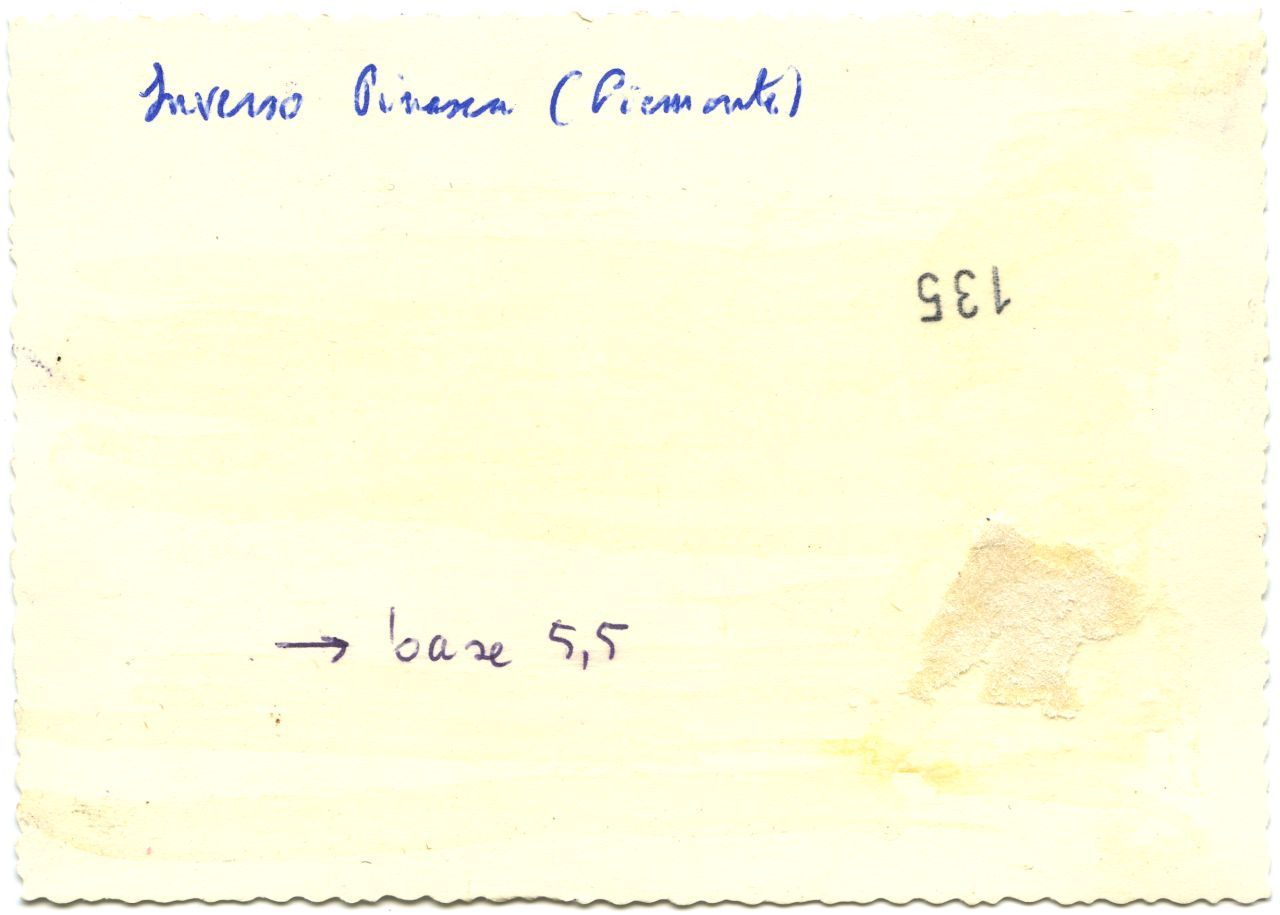 Inverso Pinasca (Piemonte)
135
→ base 5,5